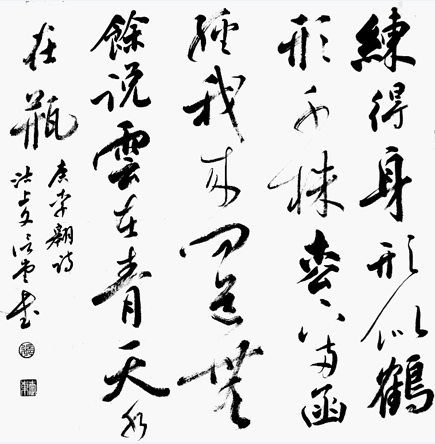 練得身形似鶴
形千株枩下兩函
經我來問道無
餘说雲在青天水
在瓶
唐李翱詩